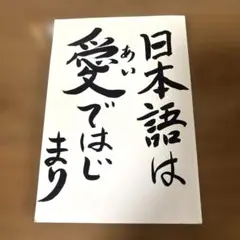 日本語は
愛ではじ
あい
まり